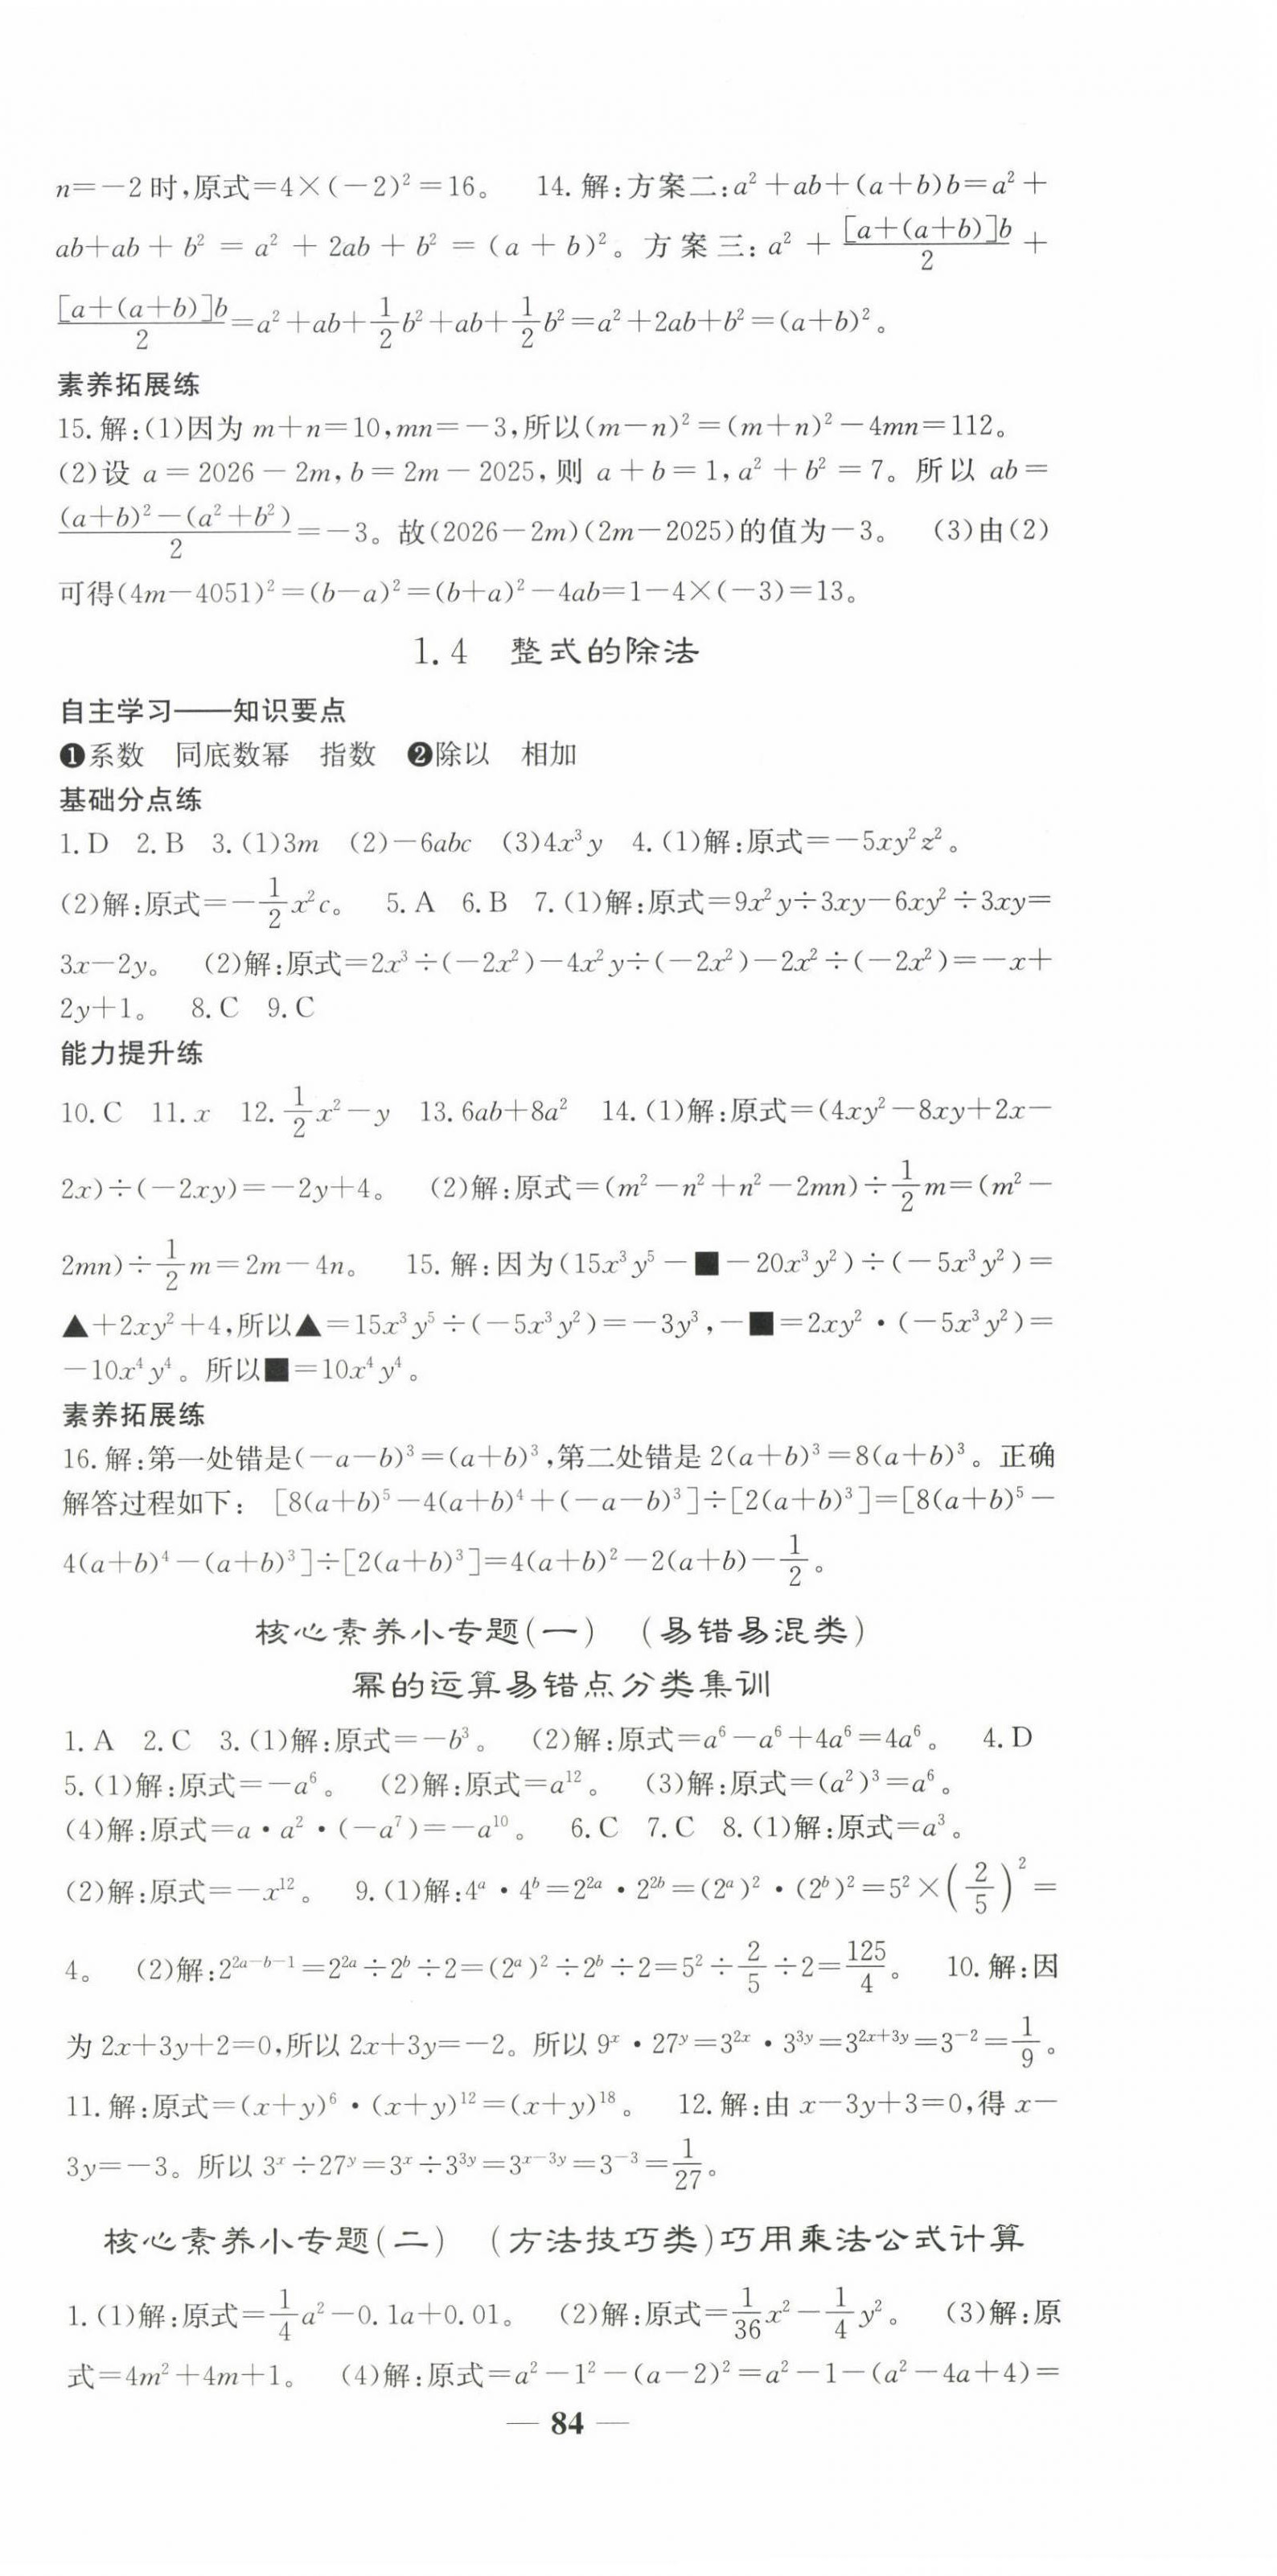 n=−2时,原式=4×(−2)²=16。 14. 解:方案二:a²+ab+(a+b)b=a²+
ab+ab+b²=a²+2ab+b²=(a+b)²。方案三:a²+\frac{[a+(a+b)]b}{2}+
\frac{[a+(a+b)]b}{2}=a²+ab+\frac{1}{2}b²+ab+\frac{1}{2}b²=a²+2ab+b²=(a+b)²。
素养拓展练
15. 解:(1)因为m+n=10,mn=−3,所以(m−n)²=(m+n)²−4mn=112。
(2)设a=2026−2m,b=2m−2025,则a+b=1,a²+b²=7。所以ab=
\frac{(a+b)²−(a²+b²)}{2}=−3。故(2026−2m)(2m−2025)的值为−3。 (3)由(2)
可得(4m−4051)²=(b−a)²=(b+a)²−4ab=1−4×(−3)=13。
1.4 整式的除法
自主学习——知识要点
❶系数 同底数幂 指数 ❷除以 相加
基础分点练
1. D 2. B 3. (1)3m (2)−6abc (3)4x³y 4. (1)解:原式=−5xy²z²。
(2)解:原式=−\frac{1}{2}x²c。 5. A 6. B 7. (1)解:原式=9x²y÷3xy−6xy²÷3xy=
3x−2y。 (2)解:原式=2x³÷(−2x²)−4x²y÷(−2x²)−2x²÷(−2x²)=−x+
2y+1。 8. C 9. C
能力提升练
10. C 11. x 12. \frac{1}{2}x²−y 13. 6ab+8a² 14. (1)解:原式=(4xy²−8xy+2x−
2x)÷(−2xy)=−2y+4。 (2)解:原式=(m²−n²+n²−2mn)÷\frac{1}{2}m=(m²−
2mn)÷\frac{1}{2}m=2m−4n。 15. 解:因为(15x³y⁵−■−20x³y²)÷(−5x³y²)=
▲+2xy²+4,所以▲=15x³y⁵÷(−5x³y²)=−3y³,−■=2xy²·(−5x³y²)=
−10x⁴y⁴。所以■=10x⁴y⁴。
素养拓展练
16. 解:第一处错是(−a−b)³=(a+b)³,第二处错是2(a+b)³=8(a+b)³。正确
解答过程如下: [8(a+b)⁵−4(a+b)⁴+(−a−b)³]÷[2(a+b)³]=[8(a+b)⁵−
4(a+b)⁴−(a+b)³]÷[2(a+b)³]=4(a+b)²−2(a+b)−\frac{1}{2}。
核心素养小专题(一) (易错易混类)
幂的运算易错点分类集训
1. A 2. C 3. (1)解:原式=−b³。 (2)解:原式=a⁶−a⁶+4a⁶=4a⁶。 4. D
5. (1)解:原式=−a⁶。 (2)解:原式=a¹²。 (3)解:原式=(a²)³=a⁶。
(4)解:原式=a·a²·(−a⁷)=−a¹⁰。 6. C 7. C 8. (1)解:原式=a³。
(2)解:原式=−x¹²。 9. (1)解:4^{a}·4^{b}=2^{2a}·2^{2b}=(2^{a})²·(2^{b})²=5²×(\frac{2}{5})²=
4。 (2)解:2^{2a−b−1}=2^{2a}÷2^{b}÷2=(2^{a})²÷2^{b}÷2=5²÷\frac{2}{5}÷2=\frac{125}{4}。 10. 解:因
为2x+3y+2=0,所以2x+3y=−2。所以9^{x}·27^{y}=3^{2x}·3^{3y}=3^{2x+3y}=3^{−2}=\frac{1}{9}。
11. 解:原式=(x+y)⁶·(x+y)¹²=(x+y)¹⁸。 12. 解:由x−3y+3=0,得x−
3y=−3。所以3^{x}÷27^{y}=3^{x}÷3^{3y}=3^{x−3y}=3^{−3}=\frac{1}{27}。
核心素养小专题(二) (方法技巧类)巧用乘法公式计算
1. (1)解:原式=\frac{1}{4}a²−0.1a+0.01。 (2)解:原式=\frac{1}{36}x²−\frac{1}{4}y²。 (3)解:原
式=4m²+4m+1。 (4)解:原式=a²−1²−(a−2)²=a²−1−(a²−4a+4)=
— 84 —